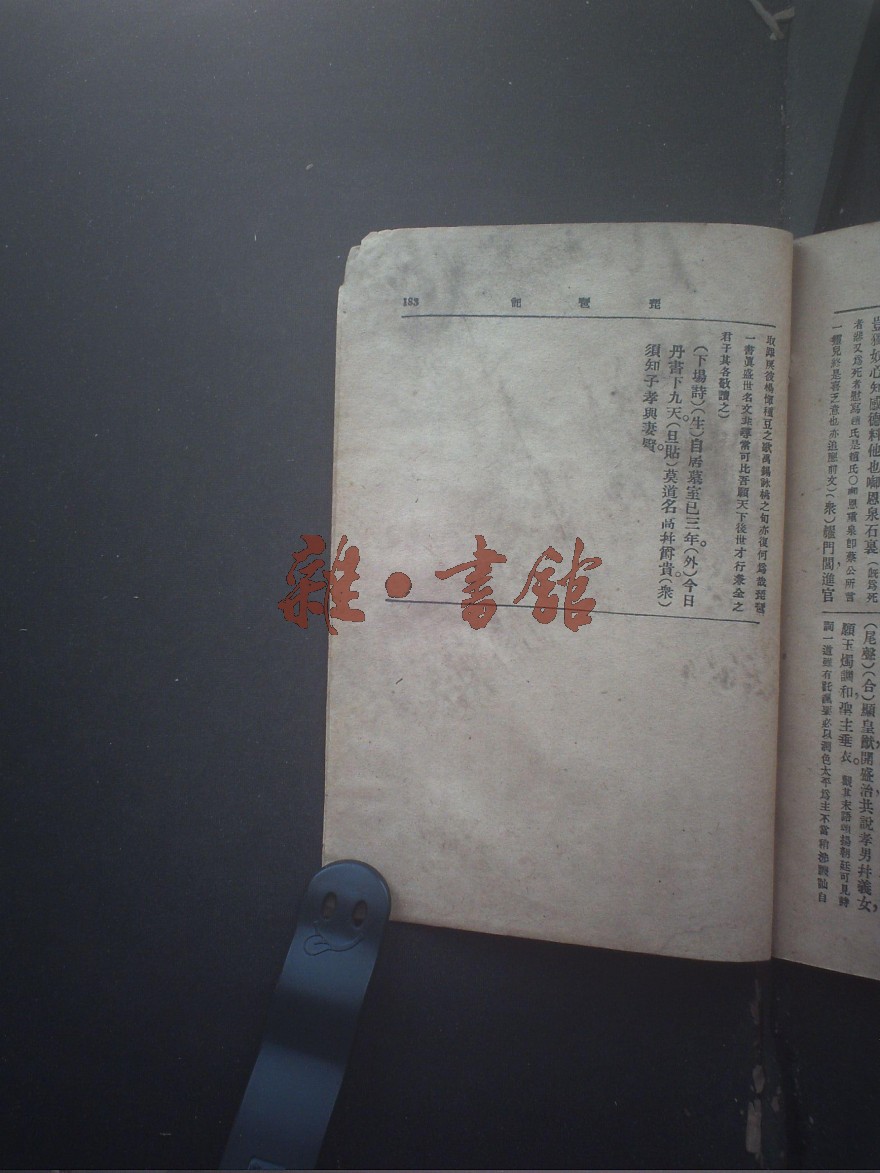 豈獨奴心知感德料他也啣恩泉石裏(旣爲死
者辭又爲死者慰寫趙氏是趙氏〇啣恩環泉卽蔡公所言
亦追應前文)(衆)耀門閭進官
(尾聲)(合)顯皇猷開盛治共說孝男幷義女,
願玉燭調和聖主垂衣。觀其末語頌揚朝廷可見
潤色太平爲主不當
琵琶記
183
之句亦復何爲哉琵琶
一書眞盛世名文非尋常可比吾願天下後世才行兼全之
君子其各敬讀之)
(下場詩)(生)自居墓室已三年。(外)今日
丹書下九天。(旦貼)莫道名高與爵貴。(衆)
須知子孝與妻賢。
雜·書館